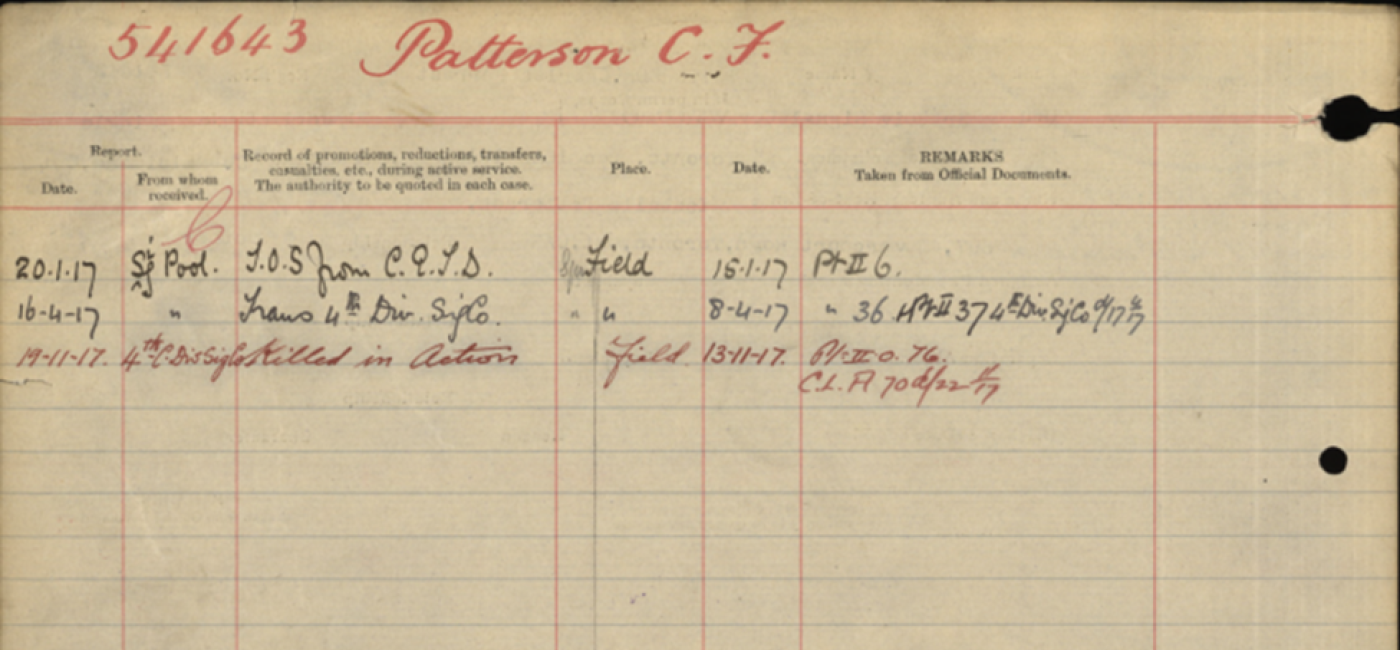 541643 Patterson C. F.
Report.
Date.
From whom
received.
Record of promotions, reductions, transfers,
casualties, etc., during active service.
The authority to be quoted in each case.
Place.
Date.
REMARKS
Taken from Official Documents.
C
20.1.17 Sig Pool. T.O.S from C.E.T.D. Field 15-1-17 Pt II 6.
16-4-17 " Trans 4th Div. Sig Co. " " 8-4-17 " 36 Pt II 37 4th Div. Sig Co
19-11-17. 4th C. Div Sig Co Killed in Action Field 13-11-17. Pt. II O. 76.
C.L. A 70 d/22 11/17